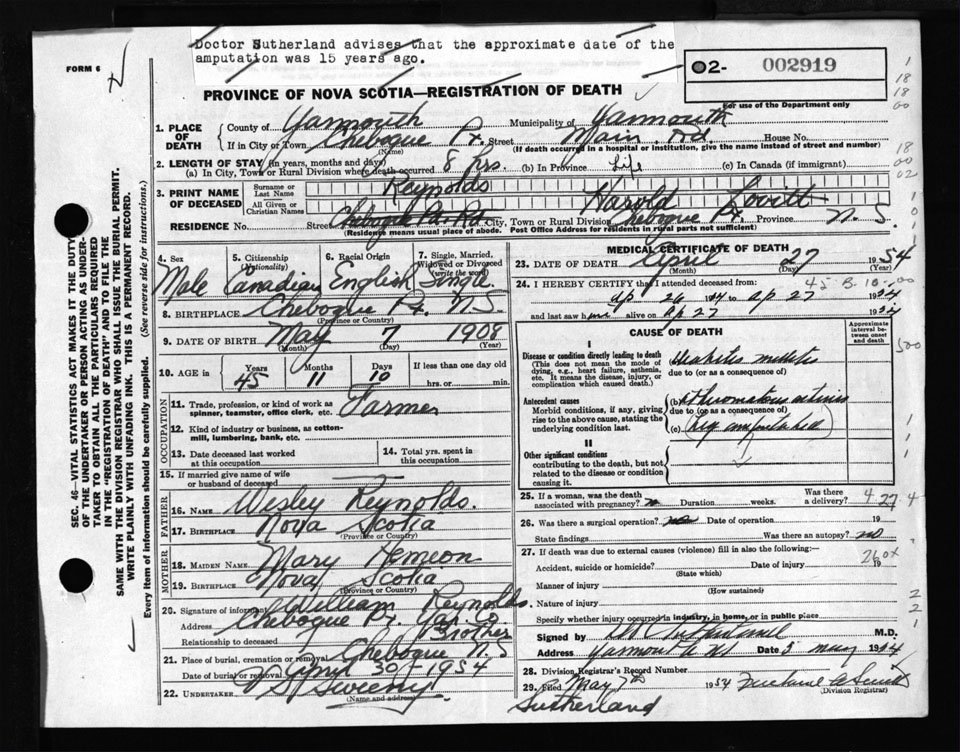 Doctor Sutherland advises that the approximate date of the
amputation was 15 years ago.
FORM 6
02- 002919
For use of the Department only
PROVINCE OF NOVA SCOTIA—REGISTRATION OF DEATH
1. PLACE OF DEATH County of Yarmouth Municipality of Yarmouth
If in City or Town Chebogue Pt. Street Main Rd House No.
(Name) (If death occurred in a hospital or institution, give the name instead of street and number)
2. LENGTH OF STAY (in years, months and days)
(a) In City, Town or Rural Division where death occurred 8 yrs. (b) In Province Life (c) In Canada (if immigrant)
3. PRINT NAME OF DECEASED Surname or Last Name Reynolds
All Given or Christian Names Harold Lovitt
RESIDENCE No. Chebogue Pt. Rd. City, Town or Rural Division Chebogue Pt. Province N.S
(Residence means usual place of abode. Post Office Address for residents in rural parts not sufficient)
4. Sex Male
5. Citizenship (Nationality) Canadian
6. Racial Origin English
7. Single, Married, Widowed or Divorced (write the word) Single
8. BIRTHPLACE Chebogue Pt. N.S.
(Province or Country)
9. DATE OF BIRTH May 7 1908
(Month) (Day) (Year)
10. AGE in Years 45 Months 11 Days 10 If less than one day old
hrs. or min.
OCCUPATION
11. Trade, profession, or kind of work as spinner, teamster, office clerk, etc. Farmer
12. Kind of industry or business, as cotton-mill, lumbering, bank, etc.
13. Date deceased last worked at this occupation
14. Total yrs. spent in this occupation
15. If married give name of wife or husband of deceased
FATHER
16. Name Wesley Reynolds.
17. Birthplace Nova Scotia
(Province or Country)
MOTHER
18. MAIDEN NAME Mary Hemeon
19. BIRTHPLACE Nova Scotia
(Province or Country)
20. Signature of informant William Reynolds.
Address Chebogue Pt. Yar. Co.
Relationship to deceased Brother
21. Place of burial, cremation or removal Chebogue N.S
Date of burial or removal April 30 - 1954
22. UNDERTAKER Sweeny
(Name and address)
MEDICAL CERTIFICATE OF DEATH
23. DATE OF DEATH April 27 1954
(Month) (Day) (Year)
24. I HEREBY CERTIFY that I attended deceased from:
Ap 26 1954 to Ap 27 1954
and last saw him alive on Ap 27 1954
CAUSE OF DEATH
Approximate interval between onset and death
I
Disease or condition directly leading to death
(This does not mean the mode of dying, e.g., heart failure, asthenia, etc. It means the disease, injury, or complication which caused death.)
(a) Diabetes
due to (or as a consequence of)
Antecedent causes
Morbid conditions, if any, giving rise to the above cause, stating the underlying condition last.
(b)
due to (or as a consequence of)
(c) (Leg amputated)
II
Other significant conditions
contributing to the death, but not related to the disease or condition causing it.
25. If a woman, was the death associated with pregnancy? Duration weeks. Was there a delivery?
26. Was there a surgical operation? Date of operation 19
State findings Was there an autopsy? no
27. If death was due to external causes (violence) fill in also the following:—
Accident, suicide or homicide? Date of injury 19
(State which)
Manner of injury
(How sustained)
Nature of injury
Specify whether injury occurred in industry, in home, or in public place
Signed by M.D.
Address Yarmouth Date 3 May 1954
28. Division Registrar's Record Number
29. Filed May 7th 1954
(Division Registrar)
Sutherland
SEC. 46—VITAL STATISTICS ACT MAKES IT THE DUTY
OF THE UNDERTAKER OR PERSON ACTING AS UNDER-
TAKER TO OBTAIN ALL THE PARTICULARS REQUIRED
IN THE "REGISTRATION OF DEATH" AND TO FILE THE
SAME WITH THE DIVISION REGISTRAR WHO SHALL ISSUE THE BURIAL PERMIT.
WRITE PLAINLY WITH UNFADING INK. THIS IS A PERMANENT RECORD.
Every item of information should be carefully supplied. (See reverse side for instructions.)